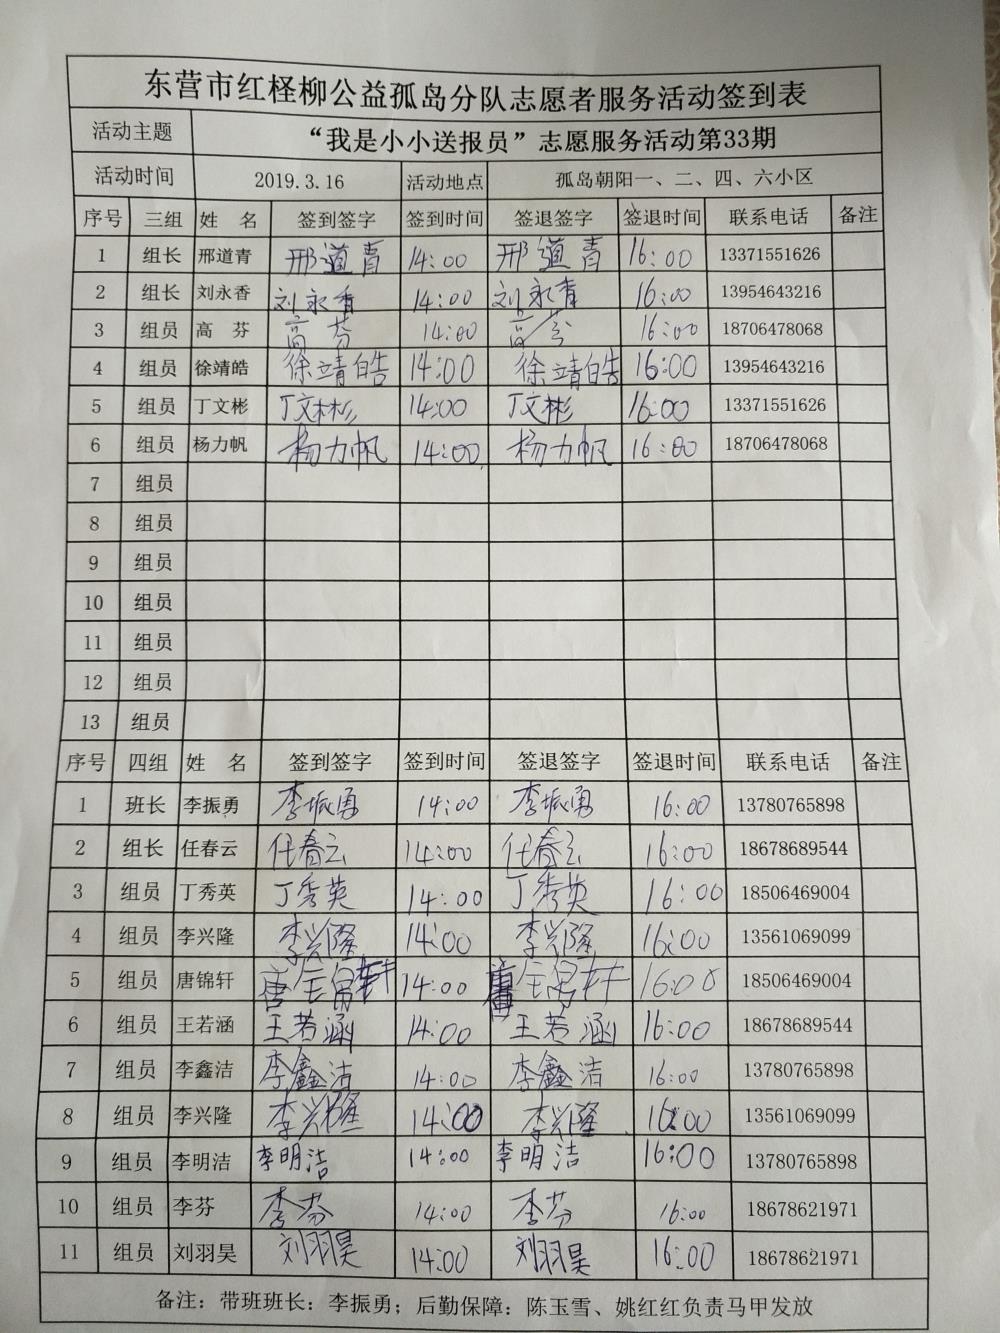 东营市红柽柳公益孤岛分队志愿者服务活动签到表
活动主题 “我是小小送报员”志愿服务活动第33期
活动时间 2019.3.16 活动地点 孤岛朝阳一、二、四、六小区
序号 三组 姓 名 签到签字 签到时间 签退签字 签退时间 联系电话 备注
1 组长 邢道青 邢道青 14:00 邢道青 16:00 13371551626
2 组长 刘永香 刘永香 14:00 刘永香 16:00 13954643216
3 组员 高 芬 高芬 14:00 高芬 16:00 18706478068
4 组员 徐靖皓 徐靖皓 14:00 徐靖皓 16:00 13954643216
5 组员 丁文彬 丁文彬 14:00 丁文彬 16:00 13371551626
6 组员 杨力帆 杨力帆 14:00 杨力帆 16:00 18706478068
7 组员
8 组员
9 组员
10 组员
11 组员
12 组员
13 组员
序号 四组 姓 名 签到签字 签到时间 签退签字 签退时间 联系电话 备注
1 班长 李振勇 李振勇 14:00 李振勇 16:00 13780765898
2 组长 任春云 任春云 14:00 任春云 16:00 18678689544
3 组员 丁秀英 丁秀英 14:00 丁秀英 16:00 18506469004
4 组员 李兴隆 李兴隆 14:00 李兴隆 16:00 13561069099
5 组员 唐锦轩 唐锦轩 14:00 唐锦轩 16:00 18506469004
6 组员 王若涵 王若涵 14:00 王若涵 16:00 18678689544
7 组员 李鑫洁 李鑫洁 14:00 李鑫洁 16:00 13780765898
8 组员 李兴隆 李兴隆 14:00 李兴隆 16:00 13561069099
9 组员 李明洁 李明洁 14:00 李明洁 16:00 13780765898
10 组员 李芬 李芬 14:00 李芬 16:00 18678621971
11 组员 刘羽昊 刘羽昊 14:00 刘羽昊 16:00 18678621971
备注：带班班长：李振勇；后勤保障：陈玉雪、姚红红负责马甲发放